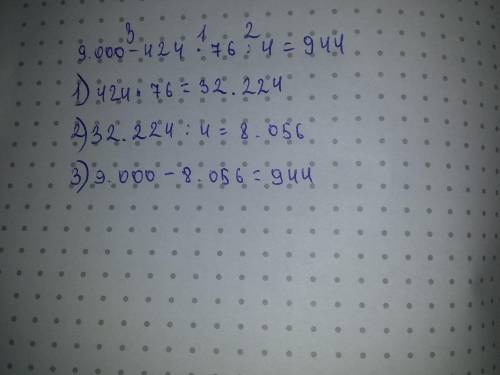 3 1 2
9.000-424·76:4=944
1) 424·76=32.224
2) 32.224:4=8.056
3) 9.000-8.056=944